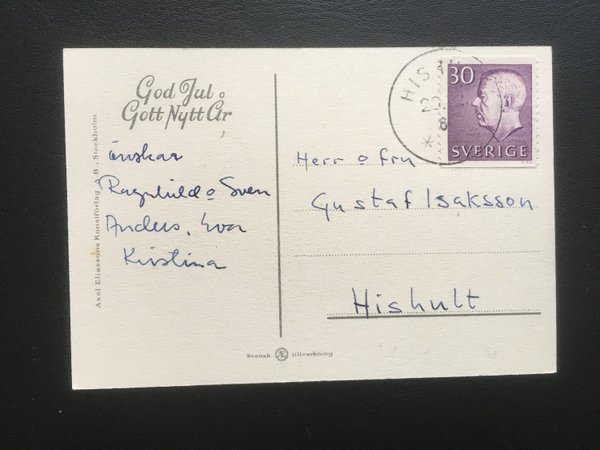 God Jul o
Gott Nytt År
önskar
Ragnhild o Sven
Anders, Eva
Kristina
Axel Eliassons Konstförlag A.B., Stockholm
30
SVERIGE
Herr o fru
Gustaf Isaksson
Hishult
Svensk Æ tillverkning